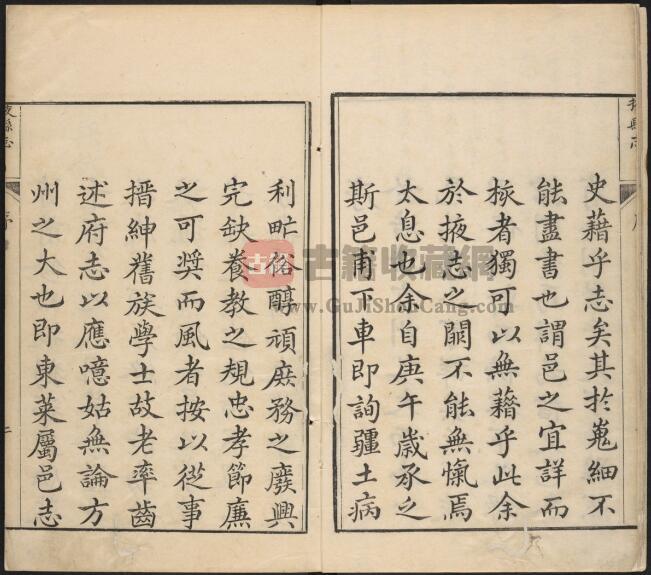 史藉乎志矣其於蒐細不
能盡書也謂邑之宜詳而
核者獨可以無藉乎此余
於掖志之闕不能無愾焉
太息也余自庚午歲承乏
斯邑甫下車即詢疆土病
利甿俗醇頑庶務之廢興
完缺養教之規忠孝節廉
之可奬而風者按以從事
搢紳舊族學士故老率齒
述府志以應噫姑無論方
州之大也即東萊屬邑志
掖縣志
序
二
古籍收藏網
www.GuJiShouCang.com